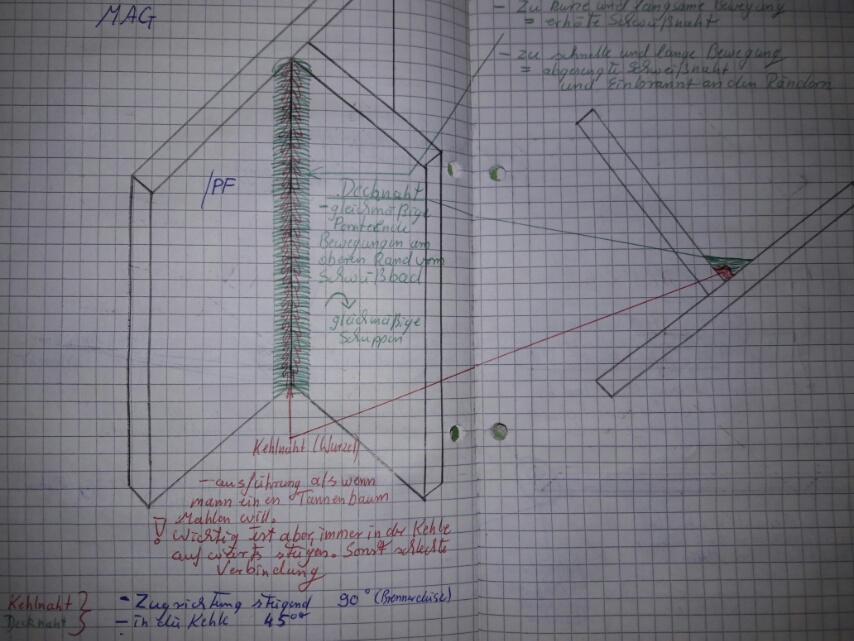 MAG
- Zu kurze und langsame Bewegung
= erhöte Schweißnaht
- zu schnelle und lange Bewegung
= abgesengte Schweißnaht
und Einbrannt an den Rändern
/PF
Decknaht
- gleichmäßige
Bewegungen am
oberen Rand vom
Schwißbad
gleichmäßige
Schuppen
Kehlnaht (Wurzel)
- ausführung als wenn
mann einen Tannenbaum
Mahlen will.
! Wichtig ist aber, immer in der Kehle
aufwärts steigen. Sonst schlechte
Verbindung
Kehlnaht } - Zugrichtung steigend 90° (Brennerdüse)
Decknaht } - in die Kehle 45°